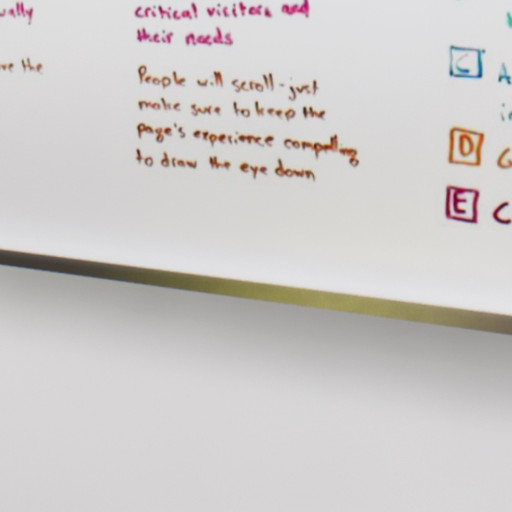 ually
ve the
critical visitors and
their needs
People will scroll-just
make sure to keep the
page's experience compelling
to draw the eye down
C A
D G
E C